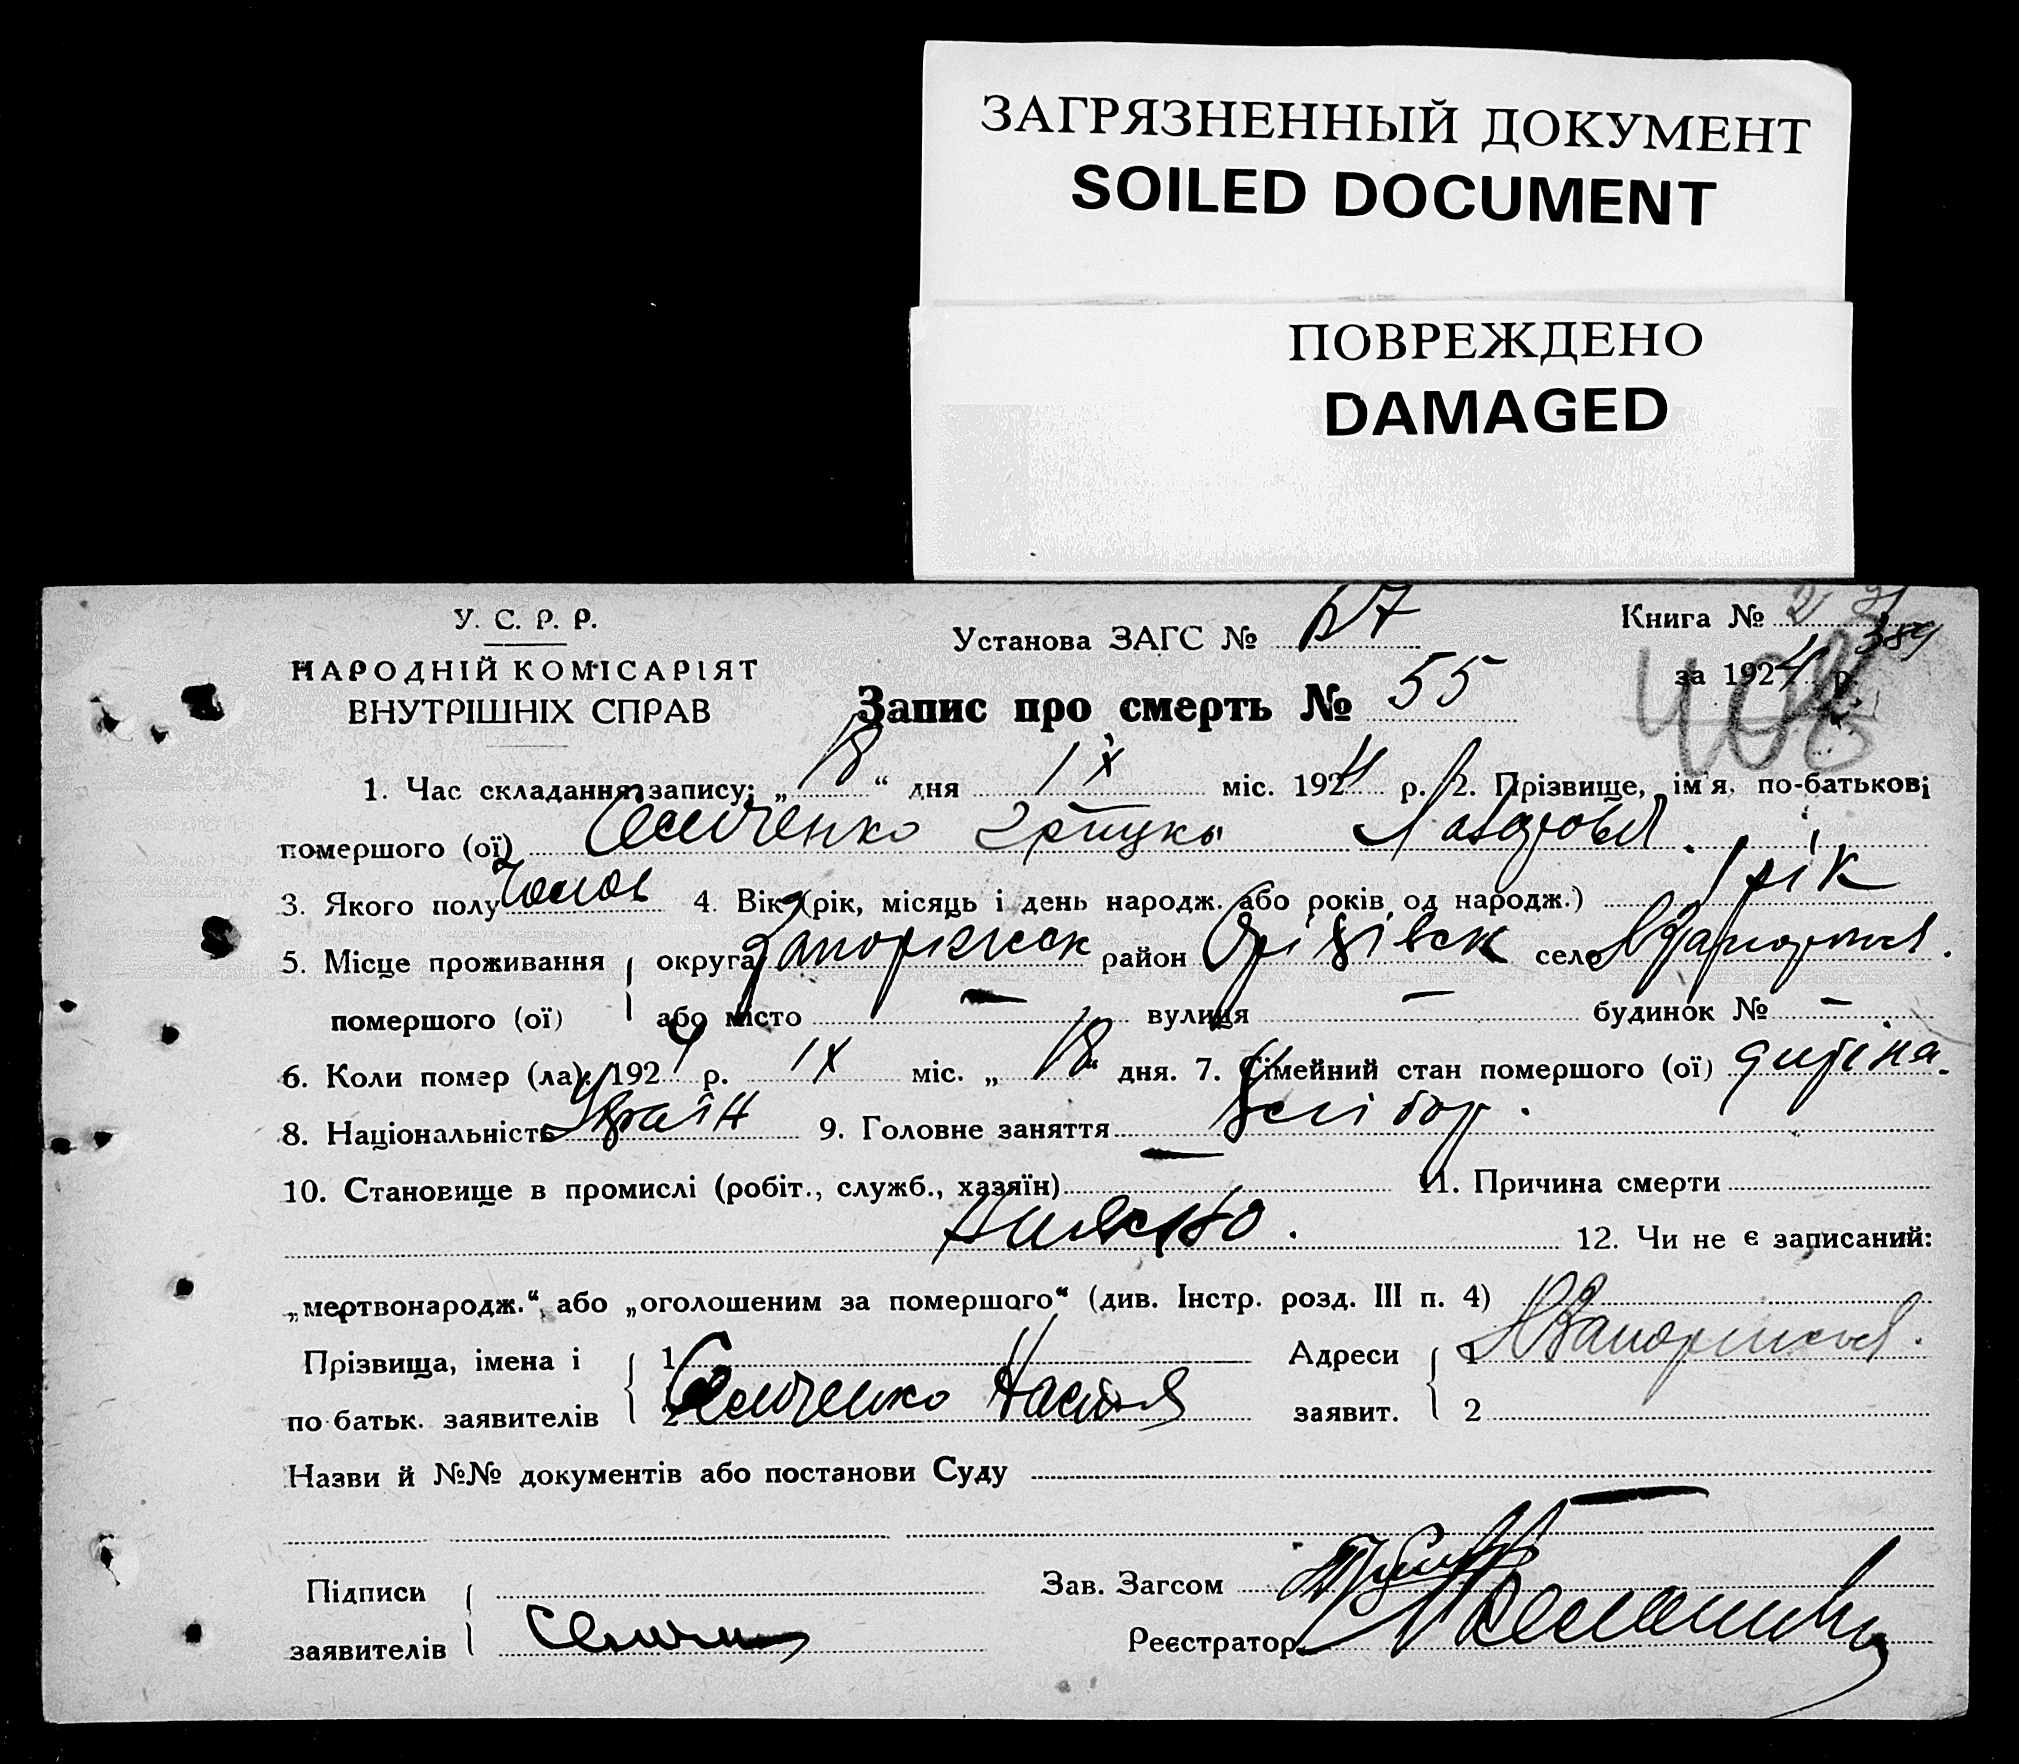 ЗАГРЯЗНЕННЫЙ ДОКУМЕНТ
SOILED DOCUMENT
ПОВРЕЖДЕНО
DAMAGED
У. С. Р. Р.
НАРОДНІЙ КОМІСАРІЯТ
ВНУТРІШНІХ СПРАВ
Установа ЗАГС №
Книга № 2
за 1924 р.
Запис про смерть № 55
1. Час складання запису: „ 18 “ дня IX міс. 1924 р. 2. Прізвище, ім'я, по-батькові
помершого (ої) Семченко Грицко
3. Якого полу Чолов 4. Вік (рік, місяць і день народж. або років од народж.) 1 рік
5. Місце проживання округа Запоріжськ район Оріхівськ село
помершого (ої) або місто – вулиця – будинок № –
6. Коли помер (ла): 1924 р. IX міс. „ 18 “ дня. 7. Сімейний стан помершого (ої) дитина.
8. Національність Україн 9. Головне заняття хлібор.
10. Становище в промислі (робіт., служб., хазяїн) – 11. Причина смерти
12. Чи не є записаний:
„мертвонародж.“, або „оголошеним за помершого“ (див. Інстр. розд. III п. 4)
Прізвища, імена і 1 Адреси 1
по батьк. заявителів 2 Семченко заявит. 2
Назви й №№ документів або постанови Суду
–
Підписи Зав. Загсом
заявителів Реєстратор